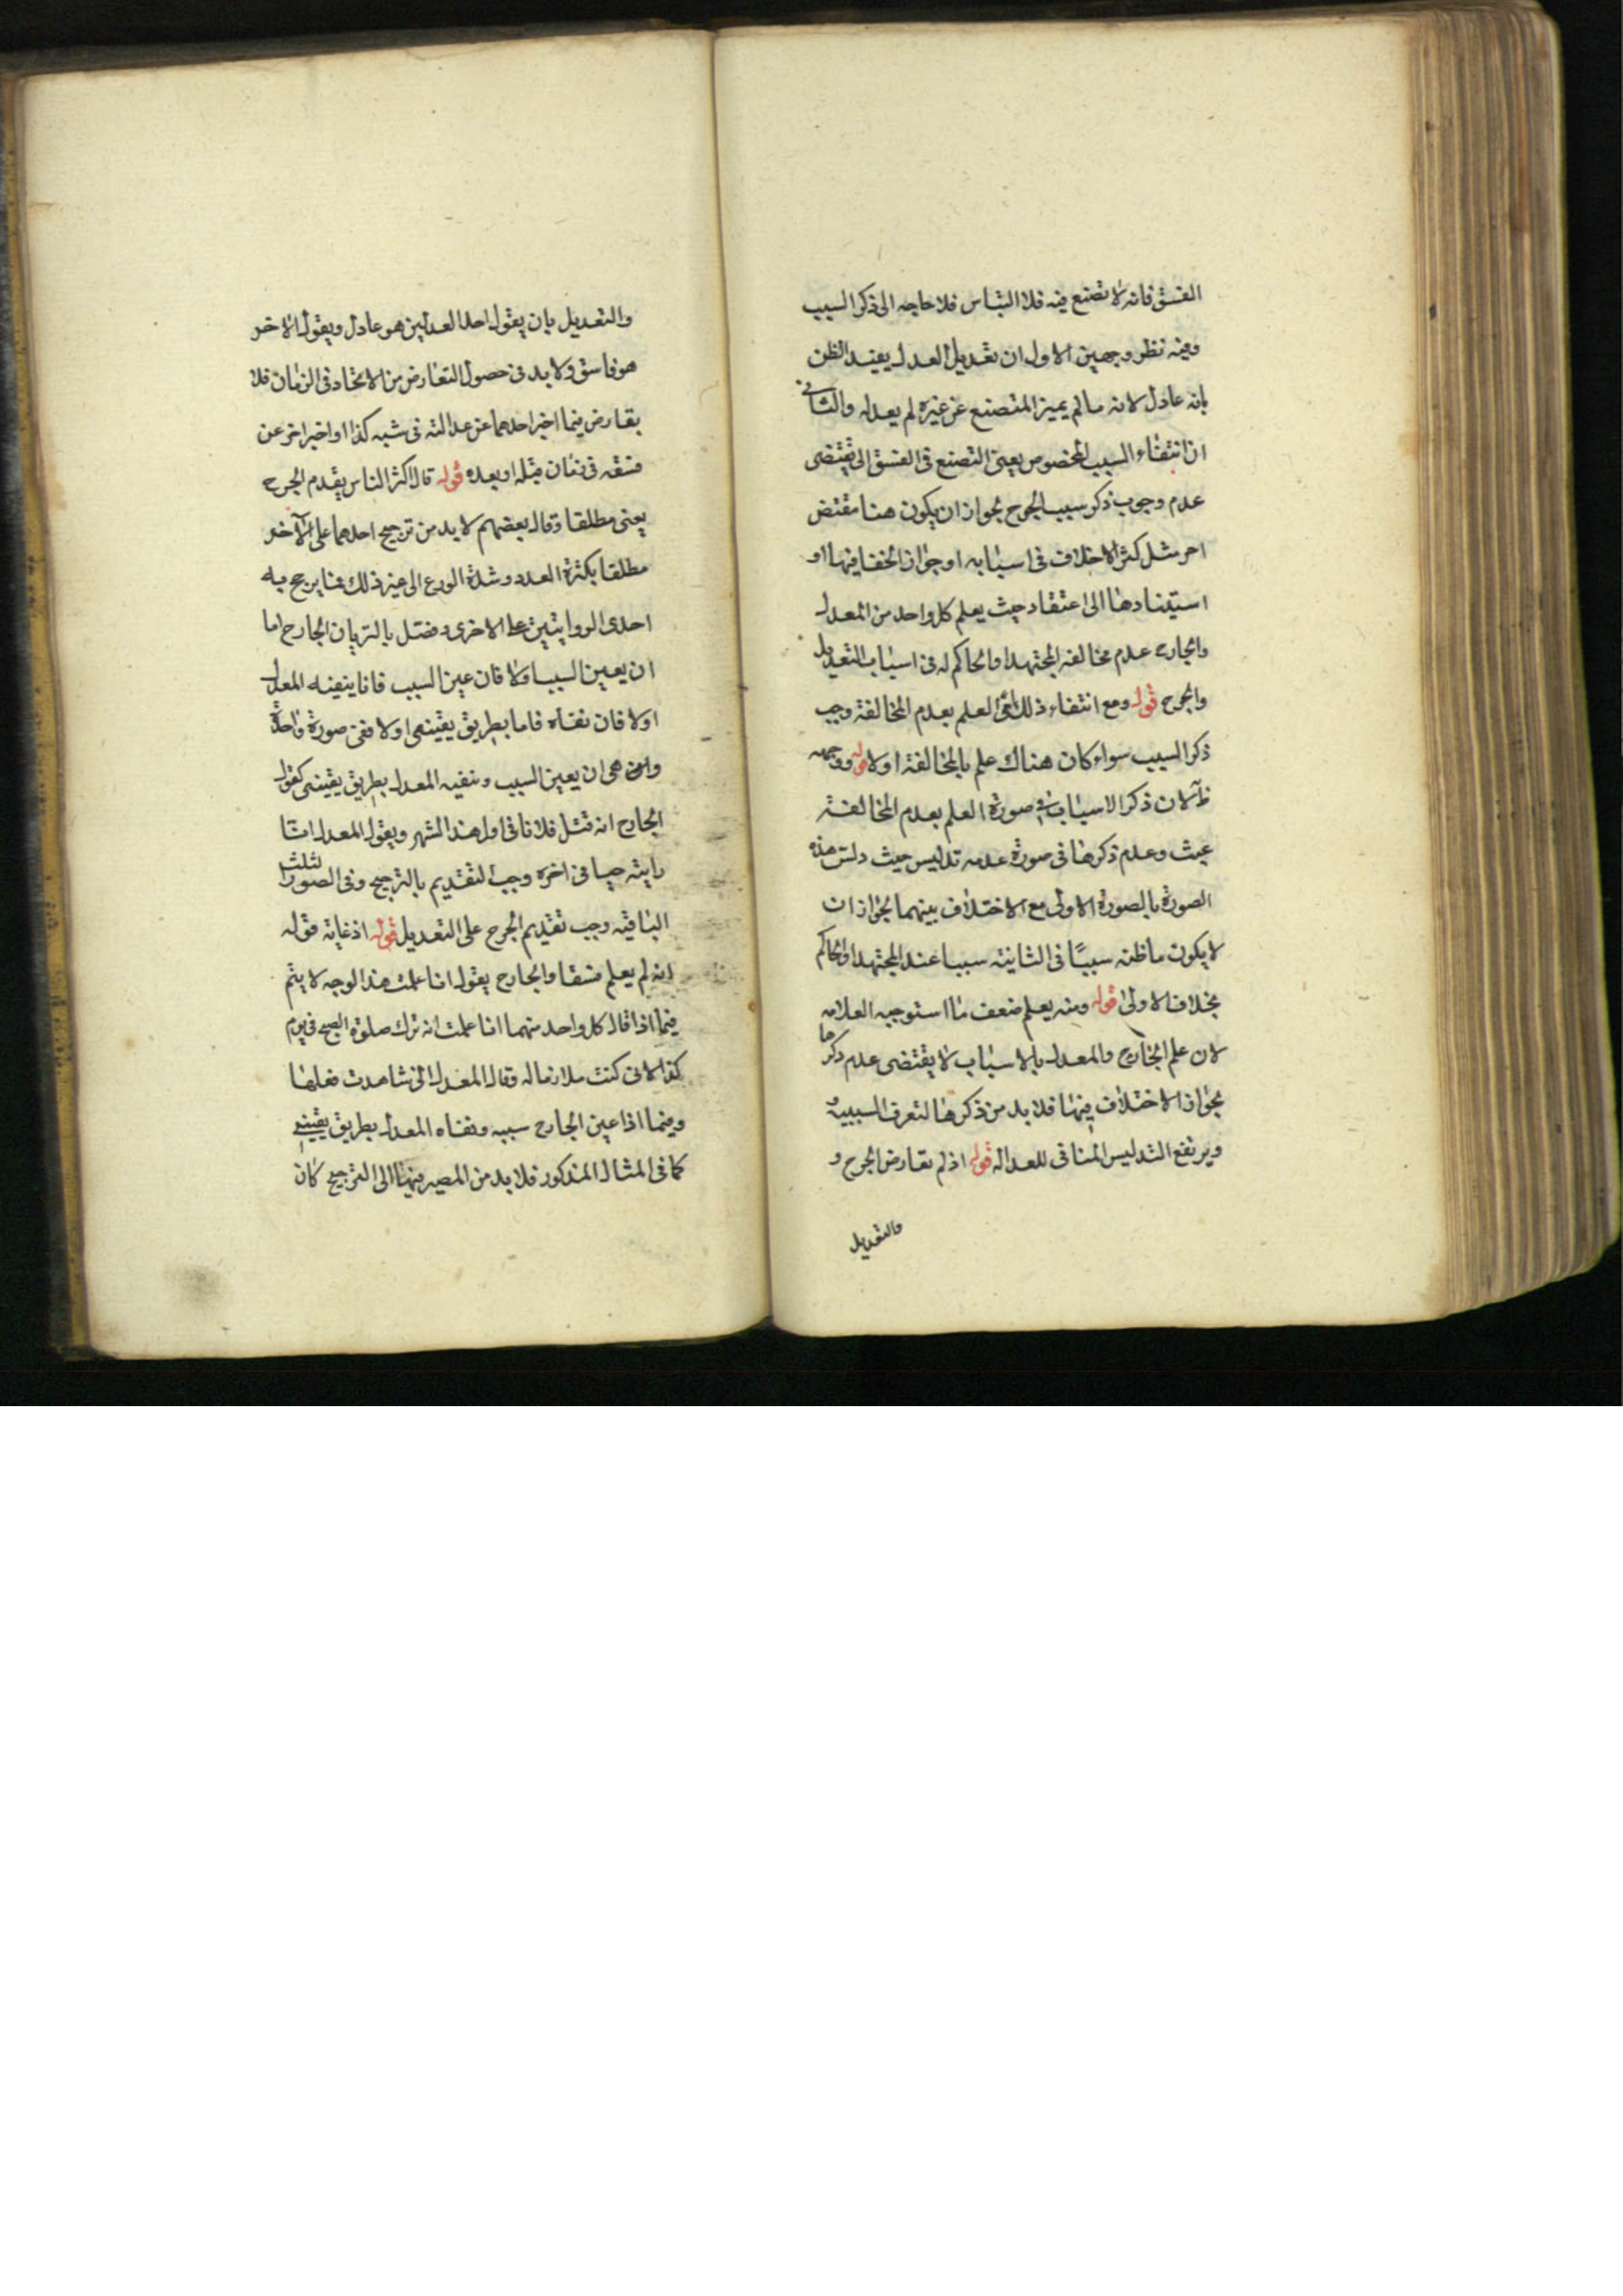 الفسق فانه لا تصنع فيه فلا التباس فلا حاجه الى ذكر السبب
وفيه نظر وجهين الاول ان تعديل العدل يفيد الظن
بانه عادل لانه ما لم يميز المتصنع عن غيره لم يعدله والثاني
ان انتفاء السبب المخصوص يعنى التصنع فى الفسق لا يقتضى
عدم وجوب ذكر سبب الجرح لجواز ان يكون هنا مقتض
اخر مثل كثرة الاختلاف فى اسبابه او جواز الخفا فيها او
استنادها الى اعتقاد حيث يعلم كل واحد من المعدل
والجارح عدم مخالفه المجتهد او الحاكم له فى اسباب التعديل
والجرح قوله ومع انتفاء ذلك اى العلم بعدم المخالفة وجب
ذكر السبب سواء كان هناك علم بالمخالفة اولا قوله ووجهه
ظ لان ذكر الاسباب فى صورة العلم بعدم المخالفة
عبث وعدم ذكرها فى صورة عدمه تدليس حيث دلس هذه
الصورة بالصورة الاولى مع الاختلاف بينهما لجواز ان
لا يكون ما ظنه سببًا فى الثانيته سببا عند المجتهد او الحاكم
بخلاف الاولى قوله ومنه يعلم ضعف ما استوجبه العلامه
لان علم الجارح والمعدل بالاسباب لا يقتضى عدم ذكرها
لجواز الاختلاف فيها فلا بد من ذكرها لتعرف السببية و
ويرتفع التدليس المنافى للعداله قوله اذ لم تعارض الجرح و
والتعديل
والتعديل بان يقول احد العدلين هو عادل ويقول الاخر
هو فاسق ولا بد فى حصول التعارض من الاتحاد فى الزمان فلا
تعارض فيما اخبر احدهما عن عدالته فى شبه كذا او اخبر اخر عن
فسقه فى زمان قبله او بعده قوله قال اكثر الناس يقدم الجرح
يعنى مطلقا وقال بعضهم لا بد من ترجيح احدهما على الآخر
مطلقا بكثرة العدد وشدة الورع الى غير ذلك مما يرجح به
احدى الروايتين على الاخرى وفصل بالتر بان الجارح اما
ان يعين السبب اولا فان عين السبب فاما ينفيه المعدل
اولا فان نفاه فاما بطريق يقينى اولا ففى صورة واحدة
وهى ان يعين السبب وينفيه المعدل بطريق يقينى كقول
الجارح انه قتل فلانا فى اول هذا الشهر ويقول المعدل انا
رايته حيا فى اخره وجب التقديم بالترجيح وفى الصور الثلث
الباقية وجب تقديم الجرح على التعديل قوله اذ غايته قوله
انه لم يعلم فسقا والجارح يقول انا علمت هذا الوجه لا يتم
فيما اذا قال كل واحد منهما انا علمت انه ترك صلوة الصبح فى يوم
كذا لانى كنت ملازما له وقال المعدل انى شاهدت فعلها
وفيما اذا عين الجارح سببه ونفاه المعدل بطريق يقينى
كما فى المثال المذكور فلا بد من المصير فيها الى الترجيح كان